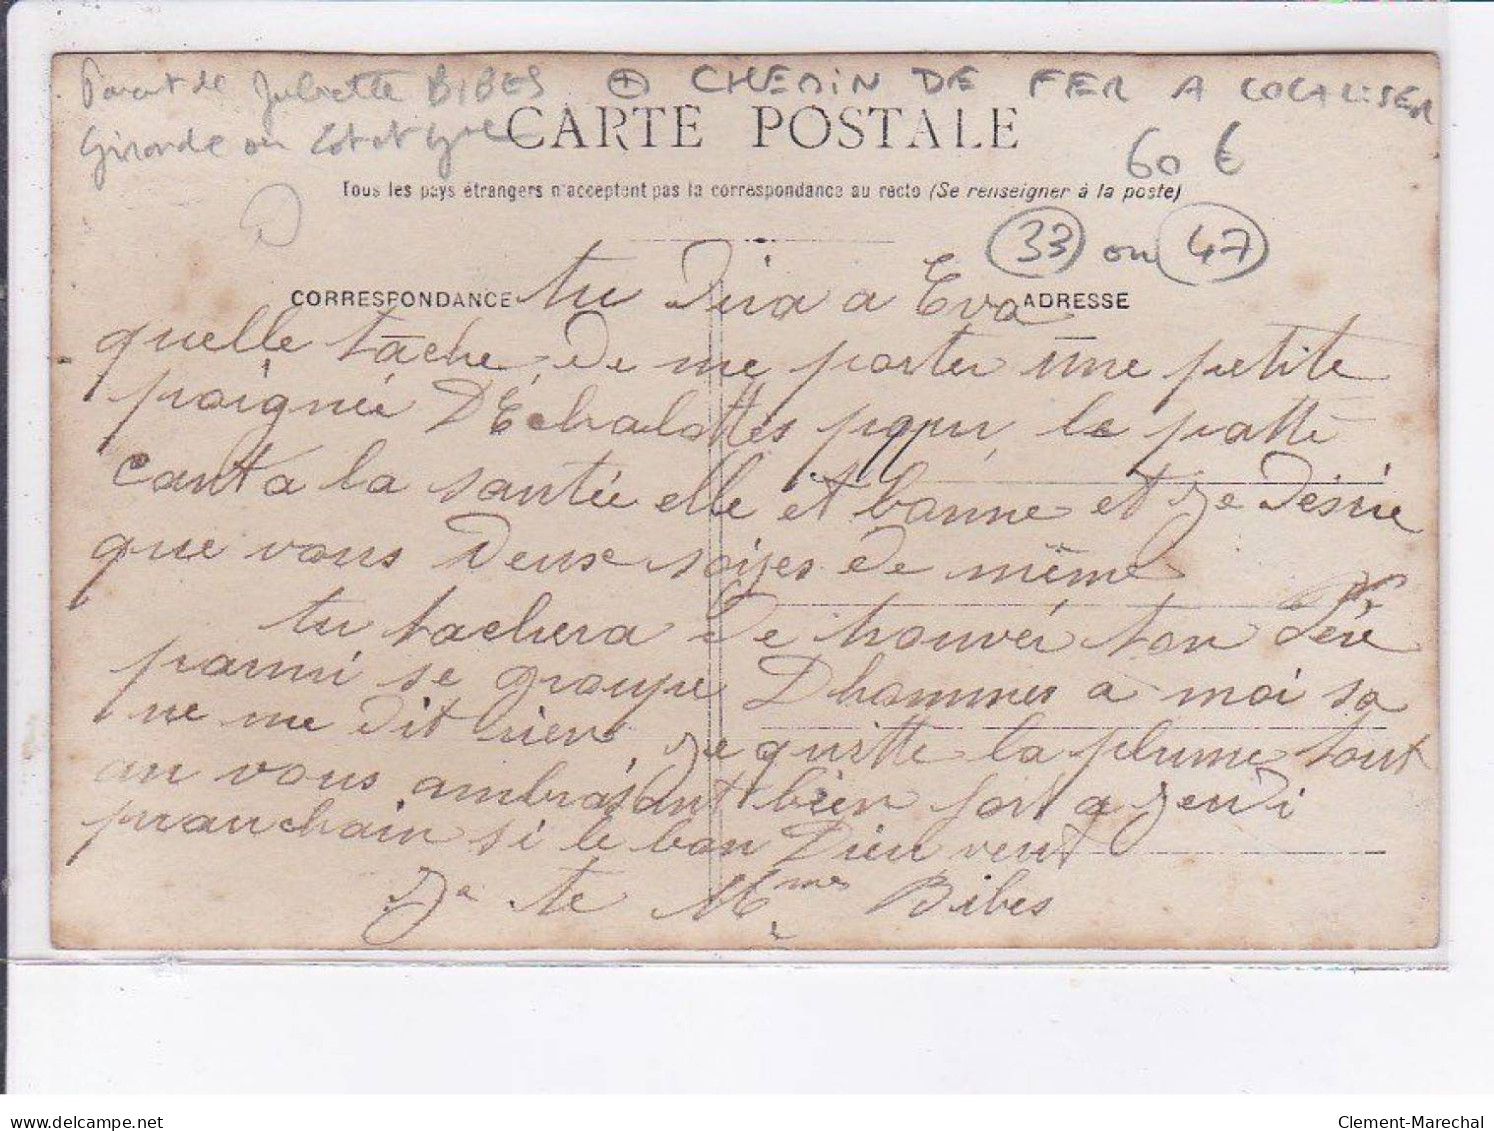 Parent de Juliette BIBES ⊕ CHEMIN DE FER A LOCALISER
Gironde ou Lot et Gne
CARTE POSTALE
60 €
Tous les pays étrangers n'acceptent pas la correspondance au recto (Se renseigner à la poste)
33 ou 47
CORRESPONDANCE
ADRESSE
tu Dira a Eva
quelle tâche de me porter une petite
poignée D'Echalottes pour le
cant a la santée elle et bonne et je Désire
que vous Deux soizes de même
tu tachera de trouver ton Père
parmi se groupe D hommes a moi sa
ne me dit rien, je quitte la plume tout
an vous ambrasant bien fort a jeudi
prauchain si le bon Dieu veut
Je te Mme Bibes
delcampe.net
Clement-Marechal